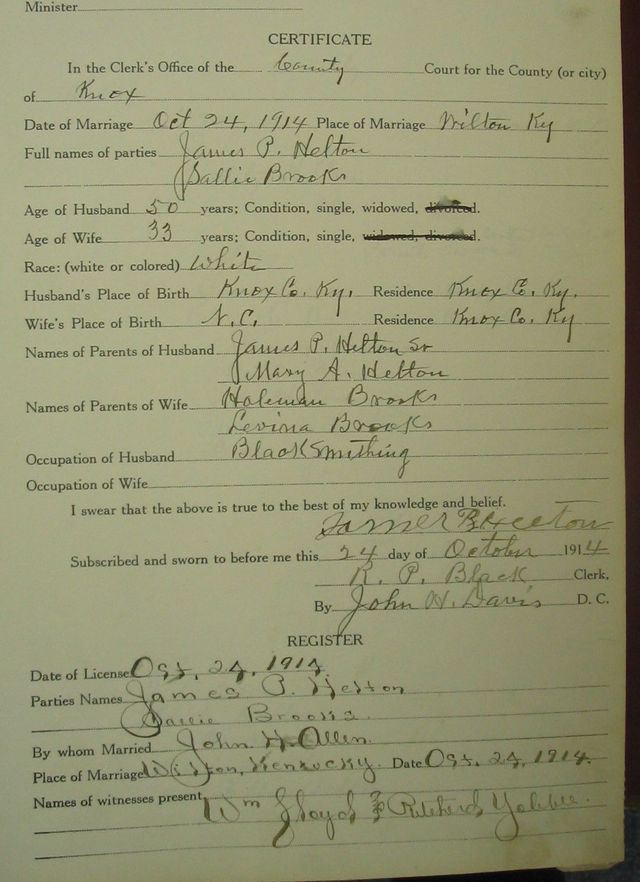 Minister
CERTIFICATE
In the Clerk's Office of the County Court for the County (or city)
of Knox
Date of Marriage Oct 24, 1914 Place of Marriage Wilton Ky
Full names of parties James P. Helton
Sallie Brooks
Age of Husband 50 years; Condition, single, widowed, divorced.
Age of Wife 33 years; Condition, single, widowed, divorced.
Race: (white or colored) White
Husband's Place of Birth Knox Co. Ky. Residence Knox Co. Ky.
Wife's Place of Birth N.C. Residence Knox Co. Ky
Names of Parents of Husband James P. Helton Sr
Mary A. Helton
Names of Parents of Wife Holeman Brooks
Levina Brooks
Occupation of Husband BlackSmithing
Occupation of Wife
I swear that the above is true to the best of my knowledge and belief.
James P Helton
Subscribed and sworn to before me this 24 day of October 1914
R. P. Black Clerk.
By John H. Davis D. C.
REGISTER
Date of License Oct, 24, 1914
Parties Names James P. Helton
Sallie Brooks.
By whom Married John H. Allen.
Place of Marriage Wilton, Kentucky. Date Oct. 24, 1914.
Names of witnesses present Wm Lloyd &